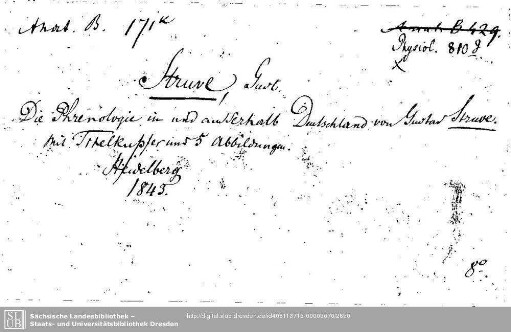 Anat. B. 171k
Anat. B 429.
Physiol. 810d
x
Struve, Gust.
Die Phrenologie in und außerhalb Deutschland von Gustav Struve.
Mit Titelkupfer und 5 Abbildungen.
Heidelberg
1843.
8o
SLUB
Sächsische Landesbibliothek –
Staats- und Universitätsbibliothek Dresden